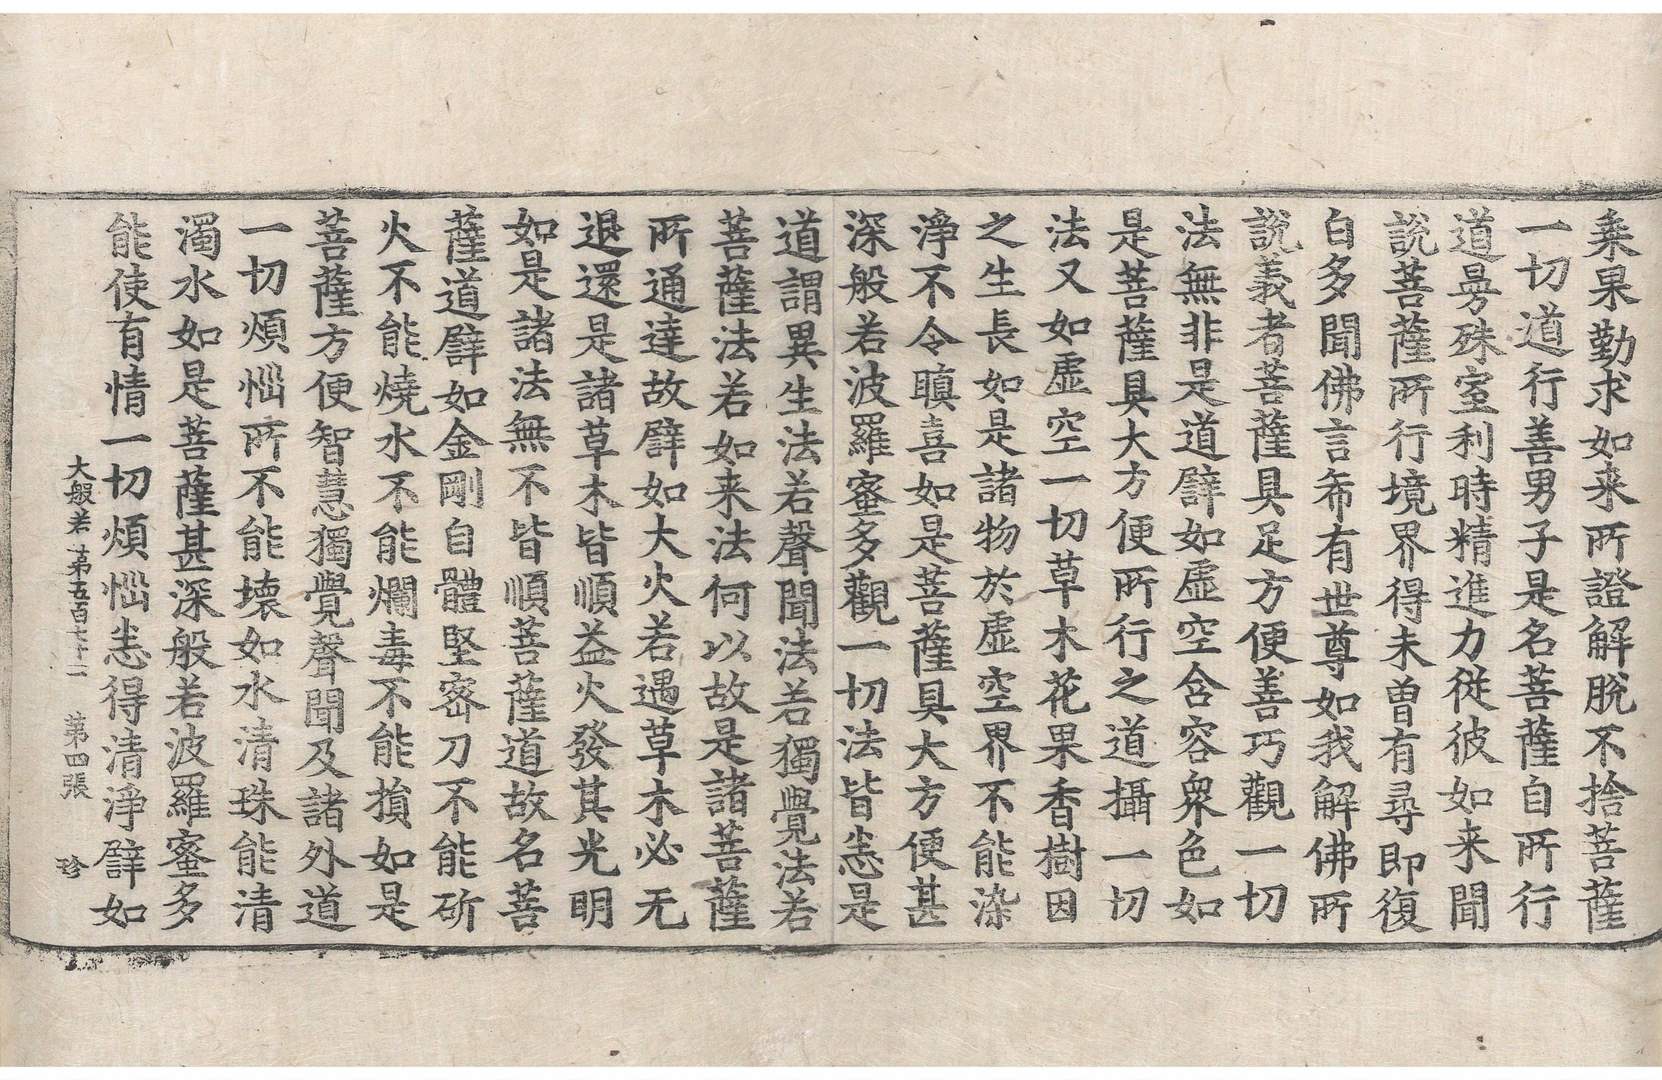 乘果勤求如来所證解脫不捨菩薩
一切道行善男子是名菩薩自所行
道曼殊室利時精進力從彼如来聞
說菩薩所行境界得未曾有尋即復
白多聞佛言希有世尊如我解佛所
說義者菩薩具足方便善巧觀一切
法無非是道譬如虛空含容衆色如
是菩薩具大方便所行之道攝一切
法又如虛空一切草木花果香樹因
之生長如是諸物於虛空界不能染
淨不令瞋喜如是菩薩具大方便甚
深般若波羅蜜多觀一切法皆悉是
道謂異生法若聲聞法若獨覺法若
菩薩法若如来法何以故是諸菩薩
所通達故譬如大火若遇草木必无
退還是諸草木皆順益火發其光明
如是諸法無不皆順菩薩道故名菩
薩道譬如金剛自體堅密刀不能斫
火不能燒水不能爛毒不能損如是
菩薩方便智慧獨覺聲聞及諸外道
一切煩惱所不能壞如水清珠能清
濁水如是菩薩甚深般若波羅蜜多
能使有情一切煩惱悉得清淨譬如
大般若第五百七十二 第四張 珍